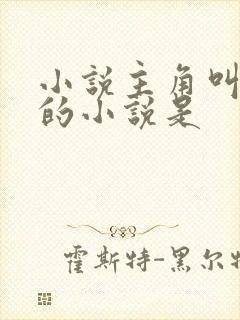 小说主角叫
的小说是
霍斯特-黑尔